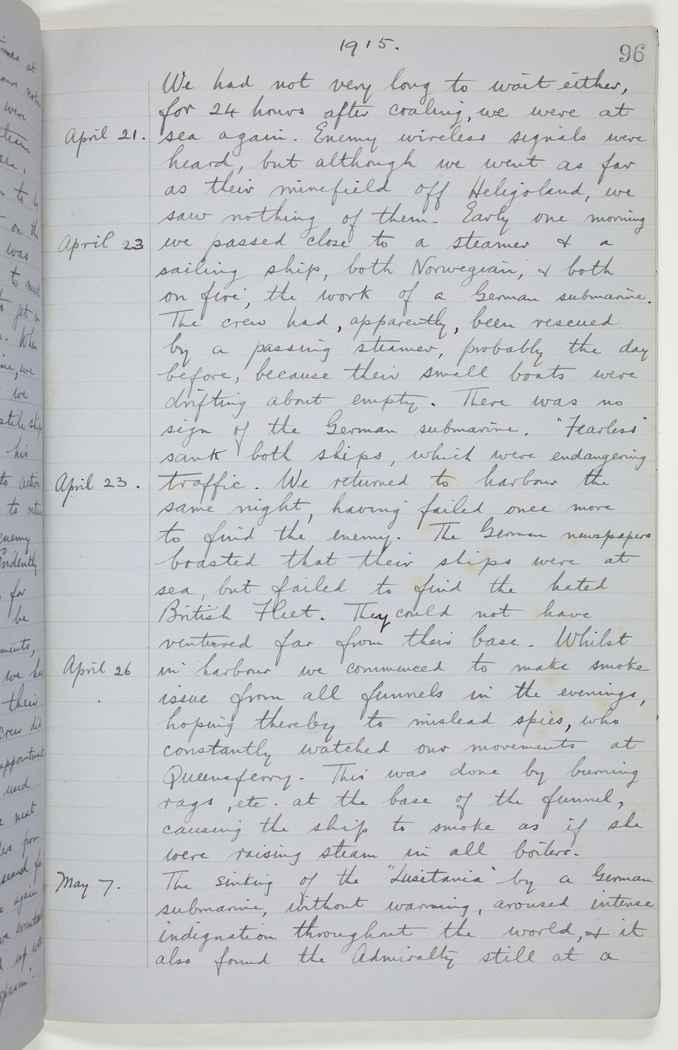 1915.
96
We had not very long to wait either,
for 24 hours after coaling, we were at
April 21. sea again. Enemy wireless signals were
heard, but although we went as far
as their minefield off Heligoland, we
saw nothing of them. Early one morning
April 23 we passed close to a steamer & a
sailing ship, both Norwegian, & both
on fire, the work of a German submarine.
The crew had, apparently, been rescued
by a passing steamer, probably the day
before, because their small boats were
drifting about empty. There was no
sign of the German submarine. "Fearless"
sank both ships, which were endangering
April 23. traffic. We returned to harbour the
same night, having failed once more
to find the enemy. The German newspapers
boasted that their ships were at
sea, but failed to find the hated
British Fleet. They could not have
ventured far from their base. Whilst
April 26 in harbour we commenced to make smoke
issue from all funnels in the evenings,
hoping thereby to mislead spies, who
constantly watched our movements at
Queensferry. This was done by burning
rags, etc. at the base of the funnel,
causing the ship to smoke as if she
were raising steam in all boilers.
May 7. The sinking of the "Lusitania" by a German
submarine, without warning, aroused intense
indignation throughout the world, & it
also found the Admiralty still at a